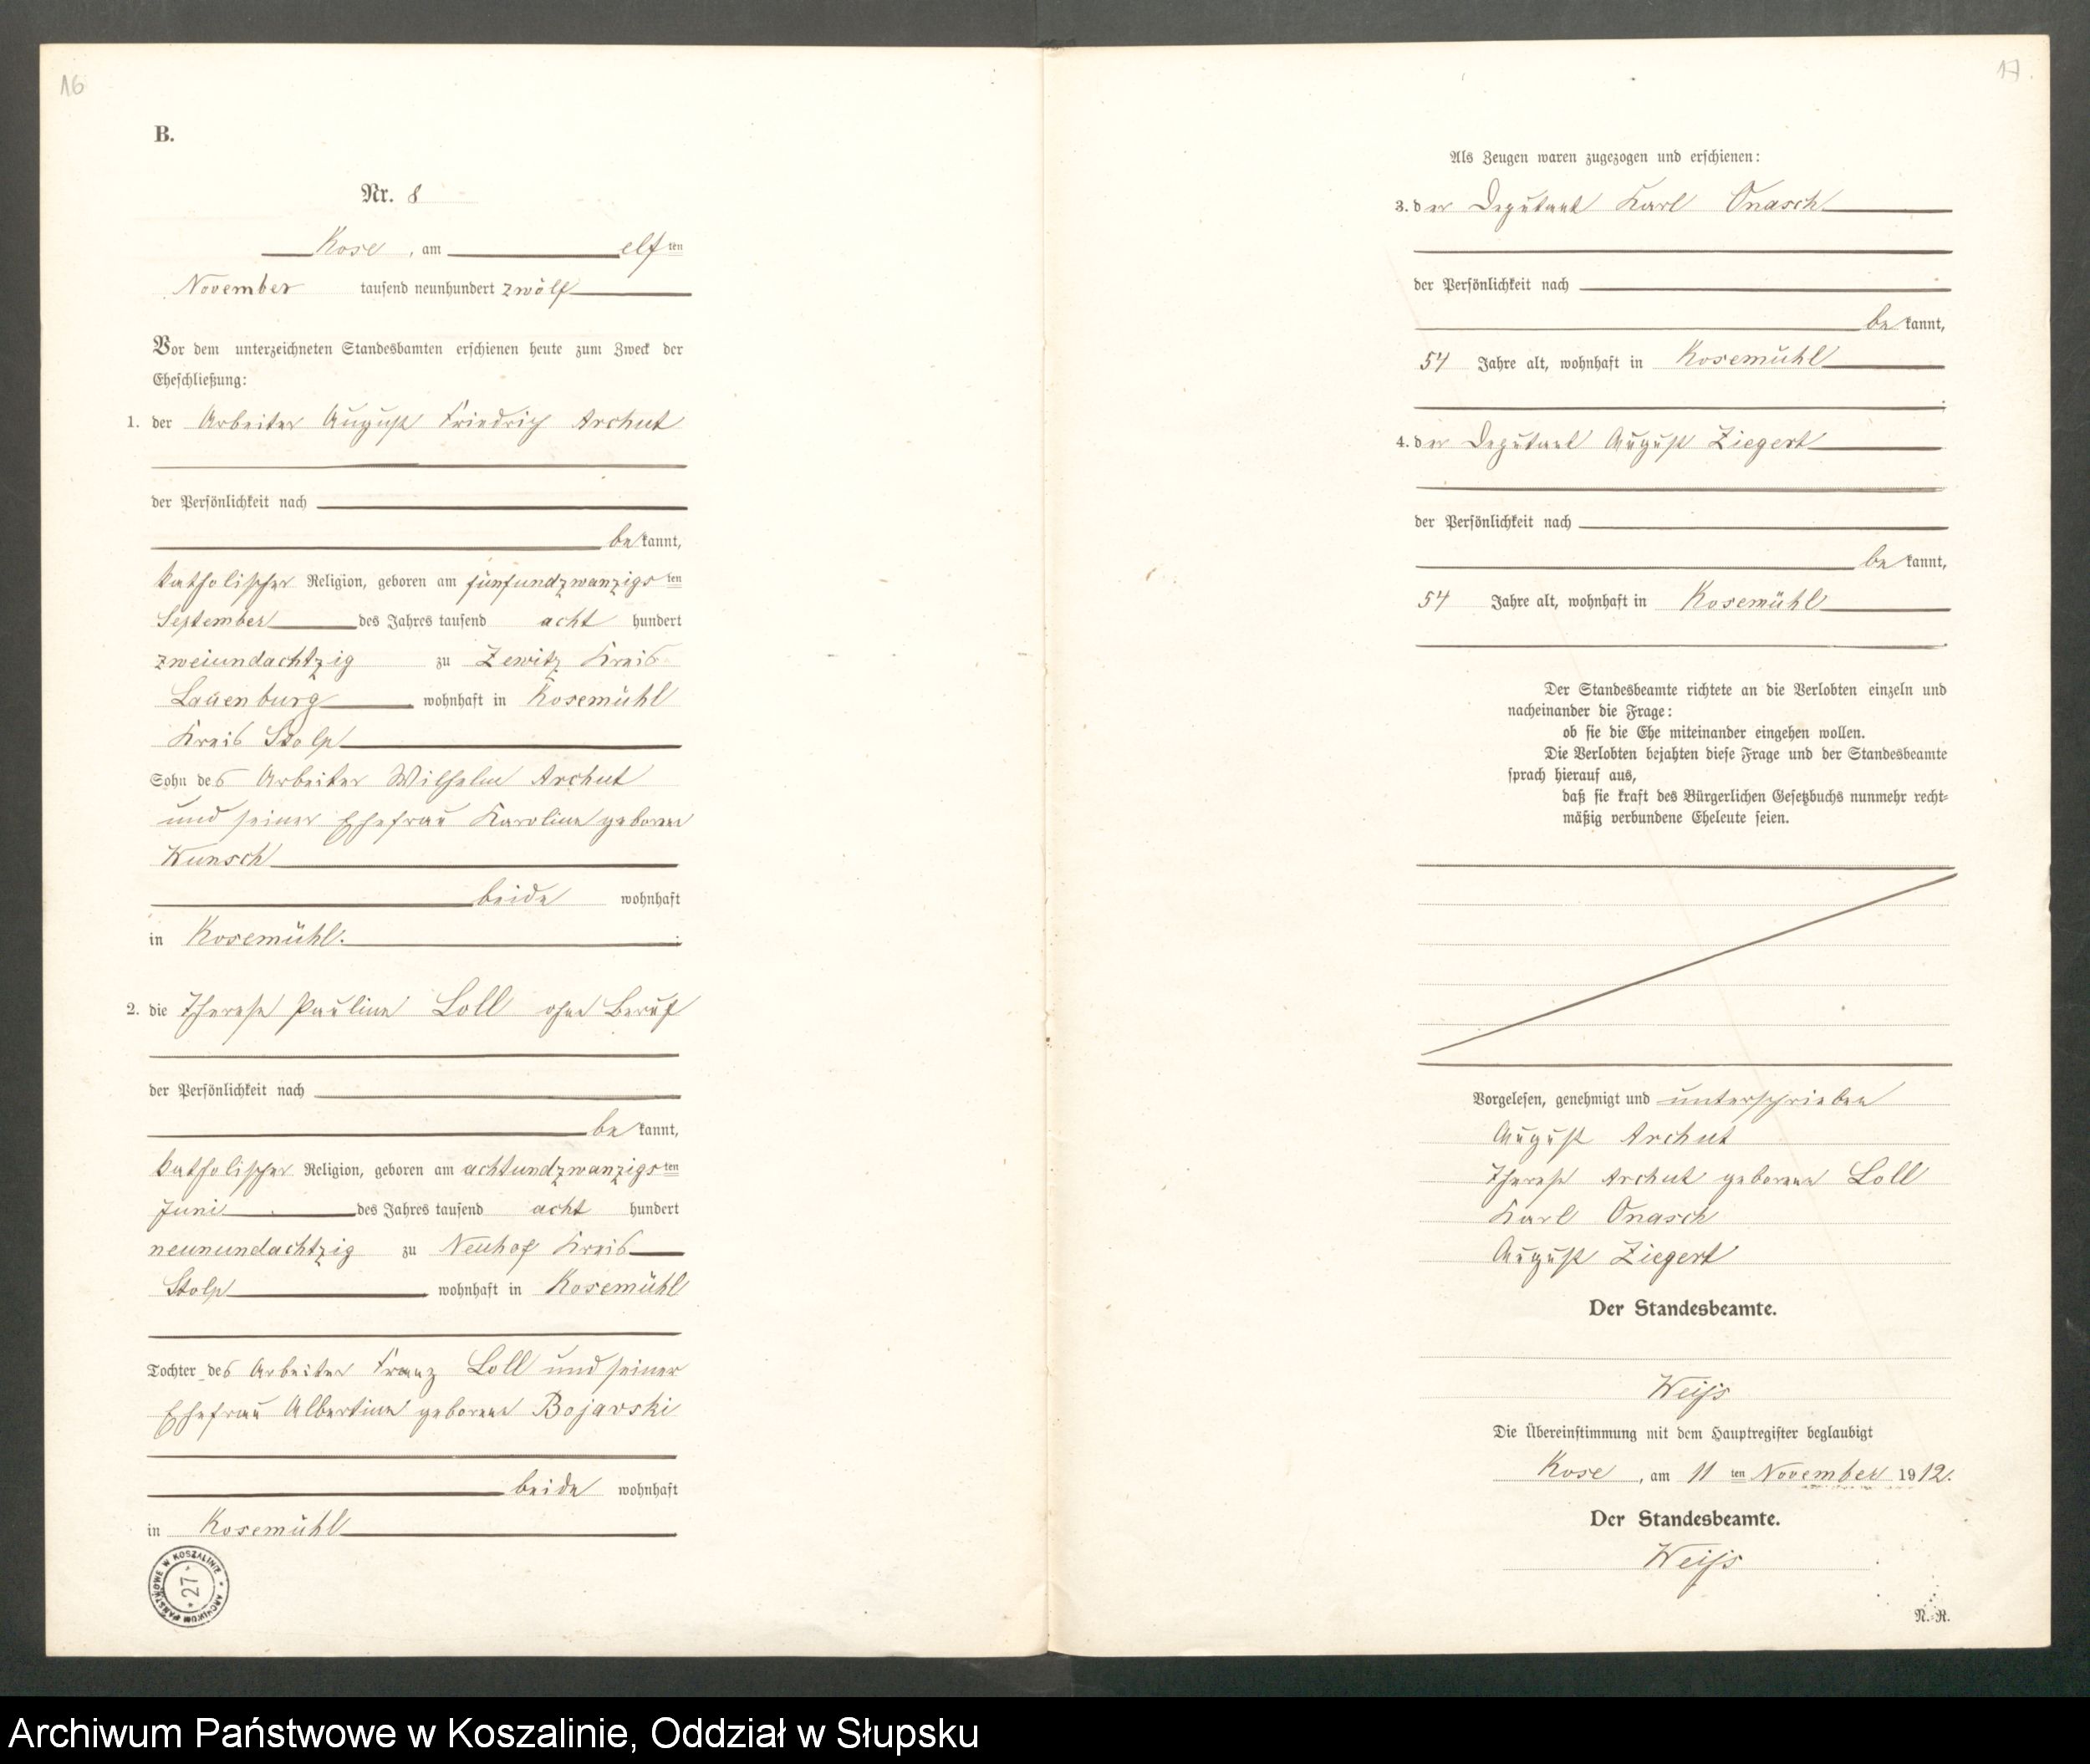 16
B.
Nr. 8
Kose, am elften
November tausend neunhundert zwölf
Vor dem unterzeichneten Standesbamten erschienen heute zum Zweck der
Eheschließung:
1. der Arbeiter August Friedrich Archut
der Persönlichkeit nach
bekannt,
katholischer Religion, geboren am fünfundzwanzigsten
September des Jahres tausend acht hundert
zweiundachtzig zu Zewitz Kreis
Lauenburg wohnhaft in Kosemühl
Kreis Stolp
Sohn des Arbeiter Wilhelm Archut
und seiner Ehefrau Karoline geborene
Wunsch
beide wohnhaft
in Kosemühl.
2. die Therese Pauline Loll ohne Beruf
der Persönlichkeit nach
bekannt,
katholischer Religion, geboren am achtundzwanzigsten
Juni des Jahres tausend acht hundert
neunundachtzig zu Neuhof Kreis
Stolp wohnhaft in Kosemühl
Tochter des Arbeiter Franz Loll und seiner
Ehefrau Albertine geborene Bojarski
beide wohnhaft
in Kosemühl
ARCHIWUM PAŃSTWOWE W KOSZALINIE * 27 *
17
Als Zeugen waren zugezogen und erschienen:
3. der Deputant Karl Onasch
der Persönlichkeit nach
bekannt,
54 Jahre alt, wohnhaft in Kosemühl
4. der Deputant August Ziegert
der Persönlichkeit nach
bekannt,
54 Jahre alt, wohnhaft in Kosemühl
Der Standesbeamte richtete an die Verlobten einzeln und
nacheinander die Frage:
ob sie die Ehe miteinander eingehen wollen.
Die Verlobten bejahten diese Frage und der Standesbeamte
sprach hierauf aus,
daß sie kraft des Bürgerlichen Gesetzbuchs nunmehr recht-
mäßig verbundene Eheleute seien.
Vorgelesen, genehmigt und unterschrieben
August Archut
Therese Archut geborene Loll
Karl Onasch
August Ziegert
Der Standesbeamte.
Weiß
Die Übereinstimmung mit dem Hauptregister beglaubigt
Kose, am 11ten November 1912.
Der Standesbeamte.
Weiß
N.-R.
Archiwum Państwowe w Koszalinie, Oddział w Słupsku